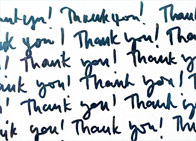 Thank you! Thank you! Thank
you! Thank you! Thank you!
Thank you! Thank you! Thank
you! Thank you! Thank you!
Thank you! Thank you!
you! Thank you! Thank